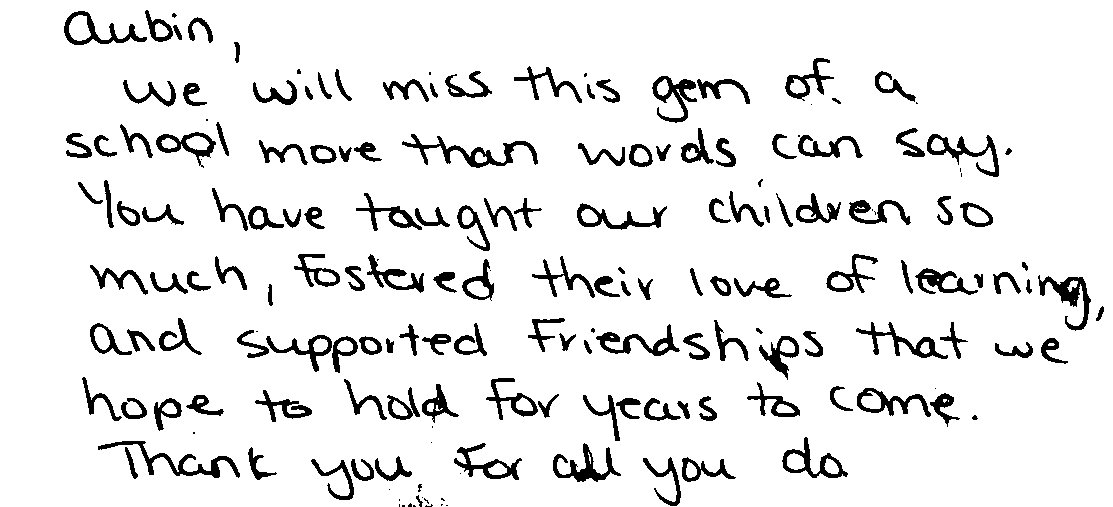 Aubin,
We will miss this gem of a
school more than words can say.
You have taught our children so
much, fostered their love of learning,
and supported friendships that we
hope to hold for years to come.
Thank you for all you do